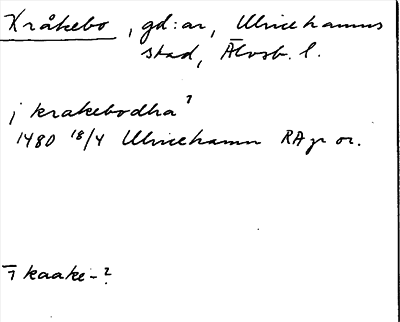 Kråkebo, gd:ar, Ulricehamns
stad, Älvsb. l.
j krakebodha?
1480 18/4 Ulricehamn RA p or.
i kaake-?